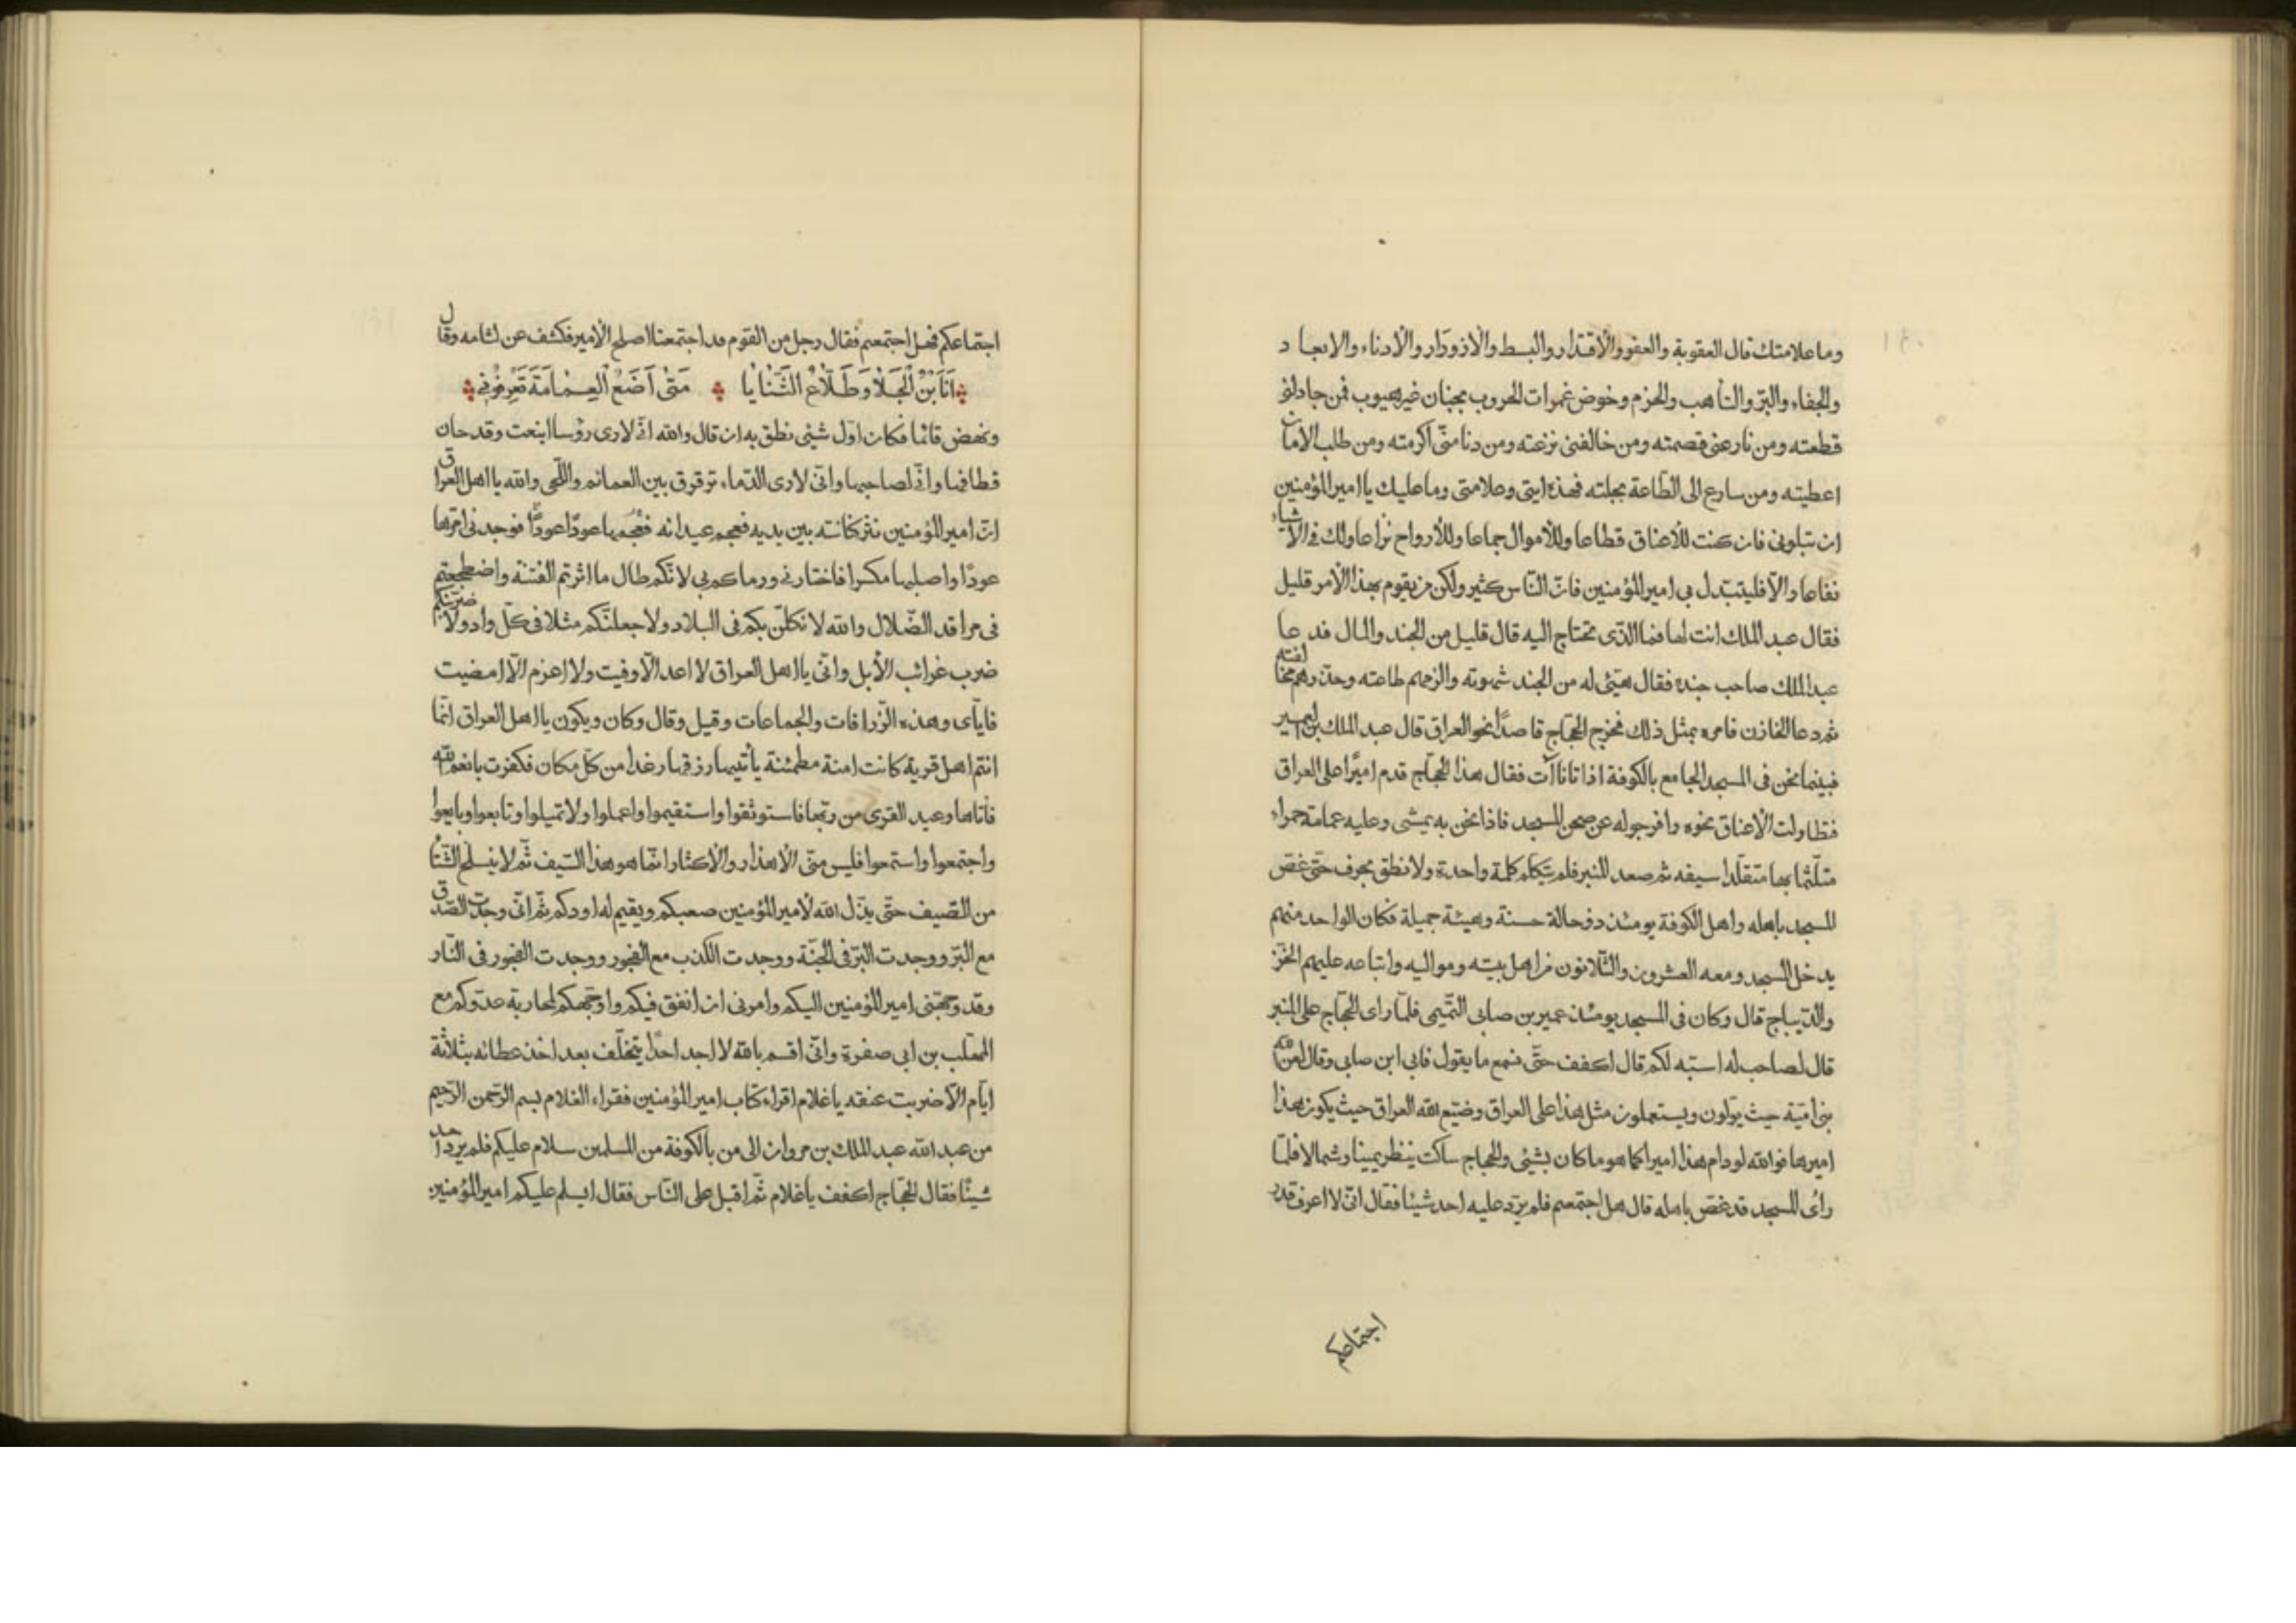 وما علامتك قال العقوبة والعفو والاقتدار والبسط والازودار والأدناء والابعاد
والجفاء والبرّ والتأهب والحزم وخوض غمرات الحروب بجنان غير هيوب فمن جادلنى
قطعته ومن نازعنى قصمته ومن خالفنى نزعته ومن دنا منّى اكرمته ومن طلب الأمان
اعطيته ومن سارع الى الطّاعة بجلته فهذه ايتى وعلامتى وما عليك يا امير المؤمنين
ان تبلونى فان كنت للأعناق قطاعا وللأموال جماعا وللأرواح نزاعا ولك فى الأشياء
نفاعا والّا فليتبدل بى امير المؤمنين فانّ النّاس كثير ولكن من يقوم بهذا الأمر قليل
فقال عبد الملك انت لها فما الذّى تحتاج اليه قال قليل من الجند والمال فدعا
عبد الملك صاحب جنده فقال هيّئ له من الجند شهوته والزمهم طاعته وحذّرهم مخالفته
ثم دعا الخازن فامره بمثل ذلك فخرج الحجّاج قاصدًا نحو العراق قال عبد الملك بن عمير
فبينما نحن فى المسجد الجامع بالكوفة اذ اتانا آت فقال هذا الحجّاج قدم اميرًا على العراق
فتطاولت الأعناق نحوه وافرجوا له عن صحن المسجد فاذا نحن به يمشى وعليه عمامة حمراء
متلّثما بها متقلّدا سيفه ثم صعد المنبر فلم يتكلم كلمة واحدة ولا نطق بحرف حتّى غصّ
المسجد باهله واهل الكوفة يومئذ ذو حالة حسنة وهيئة جميلة فكان الواحد منهم
يدخل المسجد ومعه العشرون والثّلاثون من اهل بيته ومواليه واتباعه عليهم الخزّ
والدّيباج قال وكان فى المسجد يومئذ عمير بن صابى التّميمى فلمّا راى الحجّاج على المنبر
قال لصاحب له اسبّه لكم قال اكفف حتّى نسمع ما يقول فابى ابن صابى وقال لعن الله
بنى اميّة حيث يولّون ويستعملون مثل هذا على العراق وضيّع الله العراق حيث يكون هذا
اميرها فوالله لو دام هذا اميرا كما هو ما كان بشئ والحجاج ساكت ينظر يمينا وشمالا فلمّا
رأى المسجد قد غصّ باهله قال هل اجتمعتم فلم يردّ عليه احد شيئا فقال انّى لا اعرف قدر
اجتماعكم
اجتماعكم فهل اجتمعتم فقال رجل من القوم قد اجتمعنا اصلح الأمير فكشف عن لثامه وقال
اَنَا بْنُ الْجَلَا وَطَلَّاعُ الثَّنَايَا مَتٰى اَضَعُ الْعِمَامَةَ تَعْرِفُوْنِى
ونهض قائما فكان اوّل شيئى نطق به ان قال والله انّى لارى رؤسا اينعت وقد حان
قطافها وانّى لصاحبها وانّى لارى الدّماء ترقرق بين العمائم واللّحى والله يا اهل العراق
انّ امير المؤمنين نثر كنانته بين يديه فعجم عيدانه فعجمها عودًا عودًا فوجدنى امرّها
عودًا واصلبها مكسرا فاختارنى ورماكم بى لانّكم طال ما اثرتم الفتنة واضطجعتم
فى مراقد الضّلال والله لانكلنّ بكم فى البلاد ولاجعلنّكم مثلا فى كلّ واد ولاضربنّكم
ضرب غرائب الأبل وانّى يا اهل العراق لا اعد الّا وفيت ولا اعزم الّا امضيت
فايّاى وهذه الزّرافات والجماعات وقيل وقال وكان ويكون يا اهل العراق انّما
انتم اهل قرية كانت امنة مطمئنة يأتيها رزقها رغدا من كلّ مكان فكفرت بانعم الله
فأتاها وعيد القرى من ربّها فاستوثقوا واستقيموا واعملوا ولا تميلوا وتابعوا وبايعوا
واجتمعوا واستمعوا فليس منّى الاهذار والأكثار انّما هو هذا السّيف ثمّ لا ينسلخ الشّتا
من الصّيف حتّى يذلّ الله لأمير المؤمنين صعبكم ويقيم له اودكم ثمّ انّى وجدت الصّدق
مع البرّ ووجدت البرّ فى الجنّة ووجدت الكذب مع الفجور ووجدت الفجور فى النّار
وقد وجّهنى امير المؤمنين اليكم وامرنى ان انفق فيكم واوجّهكم لمحاربة عدوّكم مع
المهلّب بن ابى صفرة وانّى اقسم بالله لا اجد احدًا يتخلّف بعد اخذ عطائه بثلاثة
ايّام الّا ضربت عنقه يا غلام اقراء كتاب امير المؤمنين فقراء الغلام بسم الرّحمن الرّحيم
من عبد الله عبد الملك بن مروان الى من بالكوفة من المسلمين سلام عليكم فلم يردّ احد
شيئًا فقال الحجّاج اكفف يا غلام ثمّ اقبل على النّاس فقال ايسلم عليكم امير المؤمنين